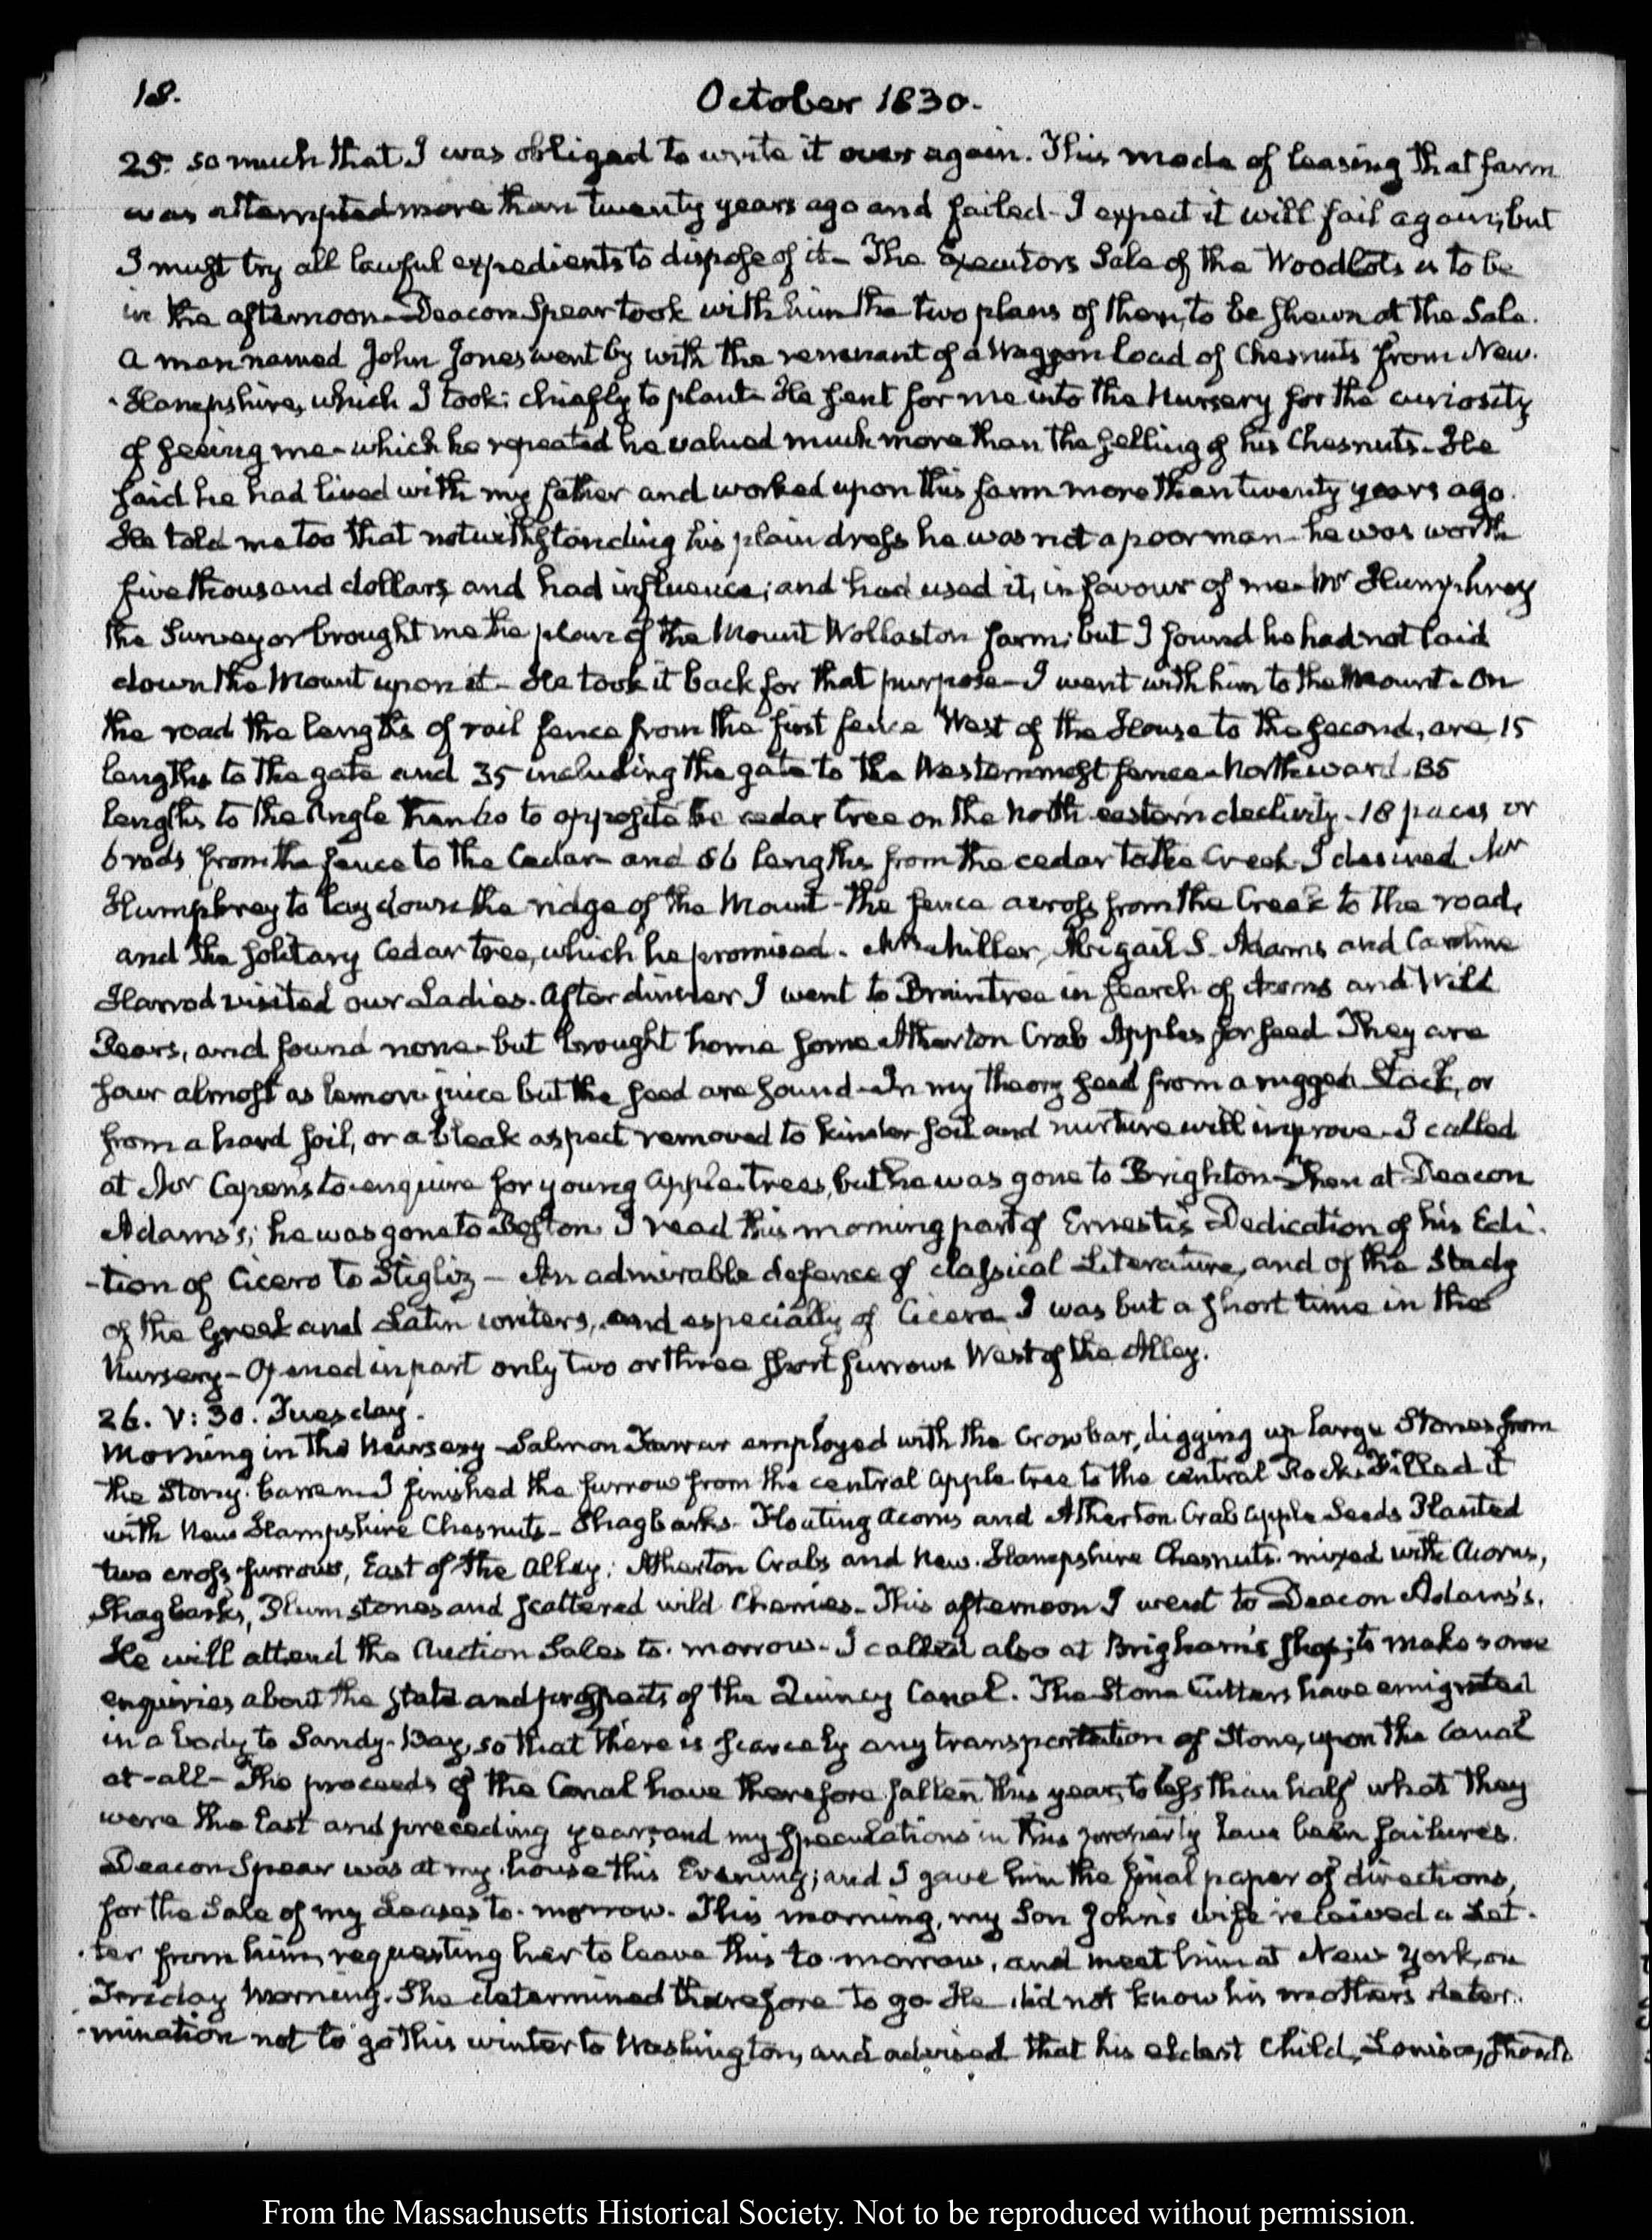 18.
October 1830.
25. so much that I was obliged to write it over again. This mode of leasing that farm
was attempted more than twenty years ago and failed - I expect it will fail again; but
I must try all lawful expedients to dispose of it - The Executors Sale of the Woodlots is to be
in the afternoon - Deacon Spear took with him the two plans of them, to be shewn at the Sale.
A man named John Jones went by with the remnant of a Waggon load of Chesnuts from New-
-Hampshire, which I took; chiefly to plant - He sent for me into the Nursery for the curiosity
of seeing me - which he repeated he valued much more than the selling of his Chesnuts - He
said he had lived with my father and worked upon this farm more than twenty years ago.
He told me too that notwithstanding his plain dress he was not a poor man - he was worth
five thousand dollars, and had influence; and had used it, in favour of me - Mr Humphrey
the Surveyor brought me the plan of the Mount Wollaston farm; but I found he had not laid
down the Mount upon it - He took it back for that purpose - I went with him to the Mount - On
the road the lengths of rail fence from the first fence West of the House to the second, are 15
lengths to the gate and 35 including the gate to the Westernmost fence - Northward 35
lengths to the Angle then 60 to opposite the cedar tree on the North eastern declivity - 18 paces or
6 rods from the fence to the Cedar - and 56 lengths from the cedar to the Creek - I desired Mr
Humphrey to lay down the ridge of the Mount - the fence across from the Creek to the road,
and the solitary Cedar tree, which he promised. Mrs Miller, Abigail S. Adams and Caroline
Harrod visited our Ladies. After dinner I went to Braintree in search of Acorns and Wild
Pears, and found none - but brought home some Atherton Crab Apples for seed They are
sour almost as lemon-juice but the seed are sound - In my theory seed from a rugged Stock, or
from a hard soil, or a bleak aspect removed to kinder soil and nurture will improve - I called
at Mr Capen's to enquire for young apple-trees, but he was gone to Brighton - Then at Deacon
Adams's; he was gone to Boston. I read this morning part of Ernesti's Dedication of his Edi-
-tion of Cicero to Stigliz - An admirable defence of classical Literature, and of the Study
of the Greek and Latin writers, and especially of Cicero I was but a short time in the
Nursery - Opened in part only two or three short furrows West of the Alley.
26. V: 30. Tuesday.
Morning in the Nursery - Salmon Farrar employed with the Crowbar, digging up large Stones from
the Stony-barren - I finished the furrow from the central apple-tree to the central Rock - Filled it
with New Hampshire Chesnuts - Shagbarks - Floating acorns and Atherton Crab apple Seeds Planted
two cross-furrows, East of the Alley; Atherton Crabs and New-Hampshire Chesnuts mixed with Acorns,
Shagbarks, Plumstones and scattered wild Cherries - This afternoon I went to Deacon Adams's.
He will attend the Auction Sales to-morrow - I called also at Brigham's shop; to make some
enquiries about the state and prospects of the Quincy Canal. The Stone Cutters have emigrated
in a body to Sandy-Bay, so that there is scarcely any transportation of Stone, upon the Canal
at-all - The proceeds of the Canal have therefore fallen this year, to less than half what they
were the last and preceding years; and my speculations in this property have been failures.
Deacon Spear was at my house this Evening; and I gave him the final paper of directions,
for the Sale of my Leases to-morrow. This morning, my Son John's wife received a Let-
-ter from him, requesting her to leave this to-morrow, and meet him at New York, on
Friday Morning. She determined therefore to go He did not know his mother's deter-
-mination not to go this winter to Washington, and advised that his eldest Child, Louisa, should
From the Massachusetts Historical Society. Not to be reproduced without permission.